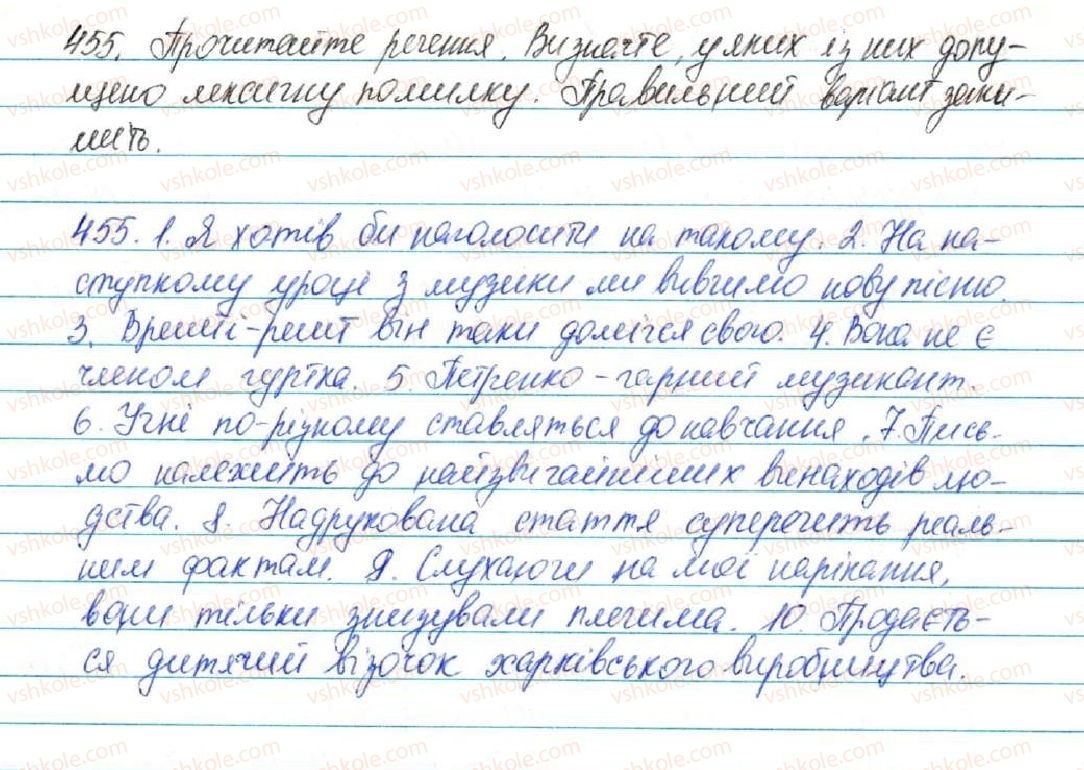 455. Прочитайте речення. Визначте, у яких із них допу-
щено лексичну помилку. Правильний варіант запи-
шіть.
455. 1. Я хотів би наголосити на такому. 2. На на-
ступному уроці з музики ми вивчимо нову пісню.
3. Врешті-решт він таки домігся свого. 4. Вона не є
членом гуртка. 5. Петренко - гарний музикант.
6. Учні по-різному ставляться до навчання. 7. Пись-
мо належить до найзвичайніших винаходів лю-
дства. 8. Надрукована стаття суперечить реаль-
ним фактам. 9. Слухаючи на мої нарікання,
вони тільки знизували плечима. 10. Продаєть-
ся дитячий візочок харківського виробництва.